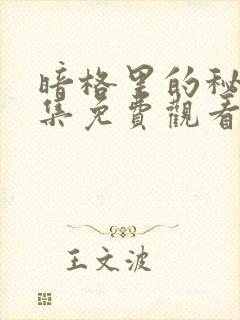 暗格里的秘
集免費觀看
王文波